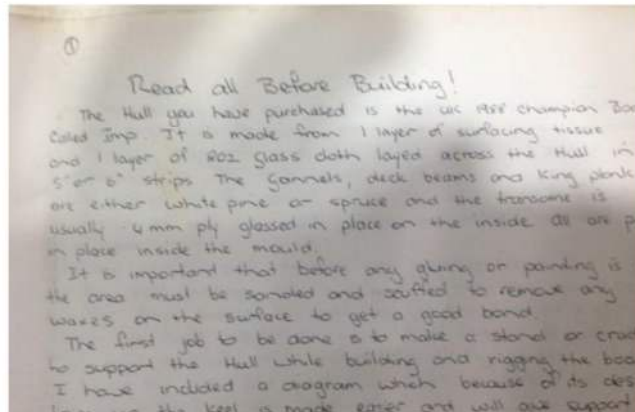 ①
Read all Before Building!
The Hull you have purchased is the UK Champion
Called Imp. It is made from 1 layer of surfacing tissue
and 1 layer of 8oz glass cloth layed across the Hull in
5" or 6" strips The Gannels, deck beams and King plank
are either white pine or spruce and the transome is
usually 4mm ply glassed in place on the inside all are
in place inside the mould.
It is important that before any gluing or painting is
the area must be sanded and scuffed to remove any
waxes on the surface to get a good bond
The first job to be done is to make a stand or
to support the Hull while building and rigging the
I have included a diagram which because of its
the keel is made easier and will give support